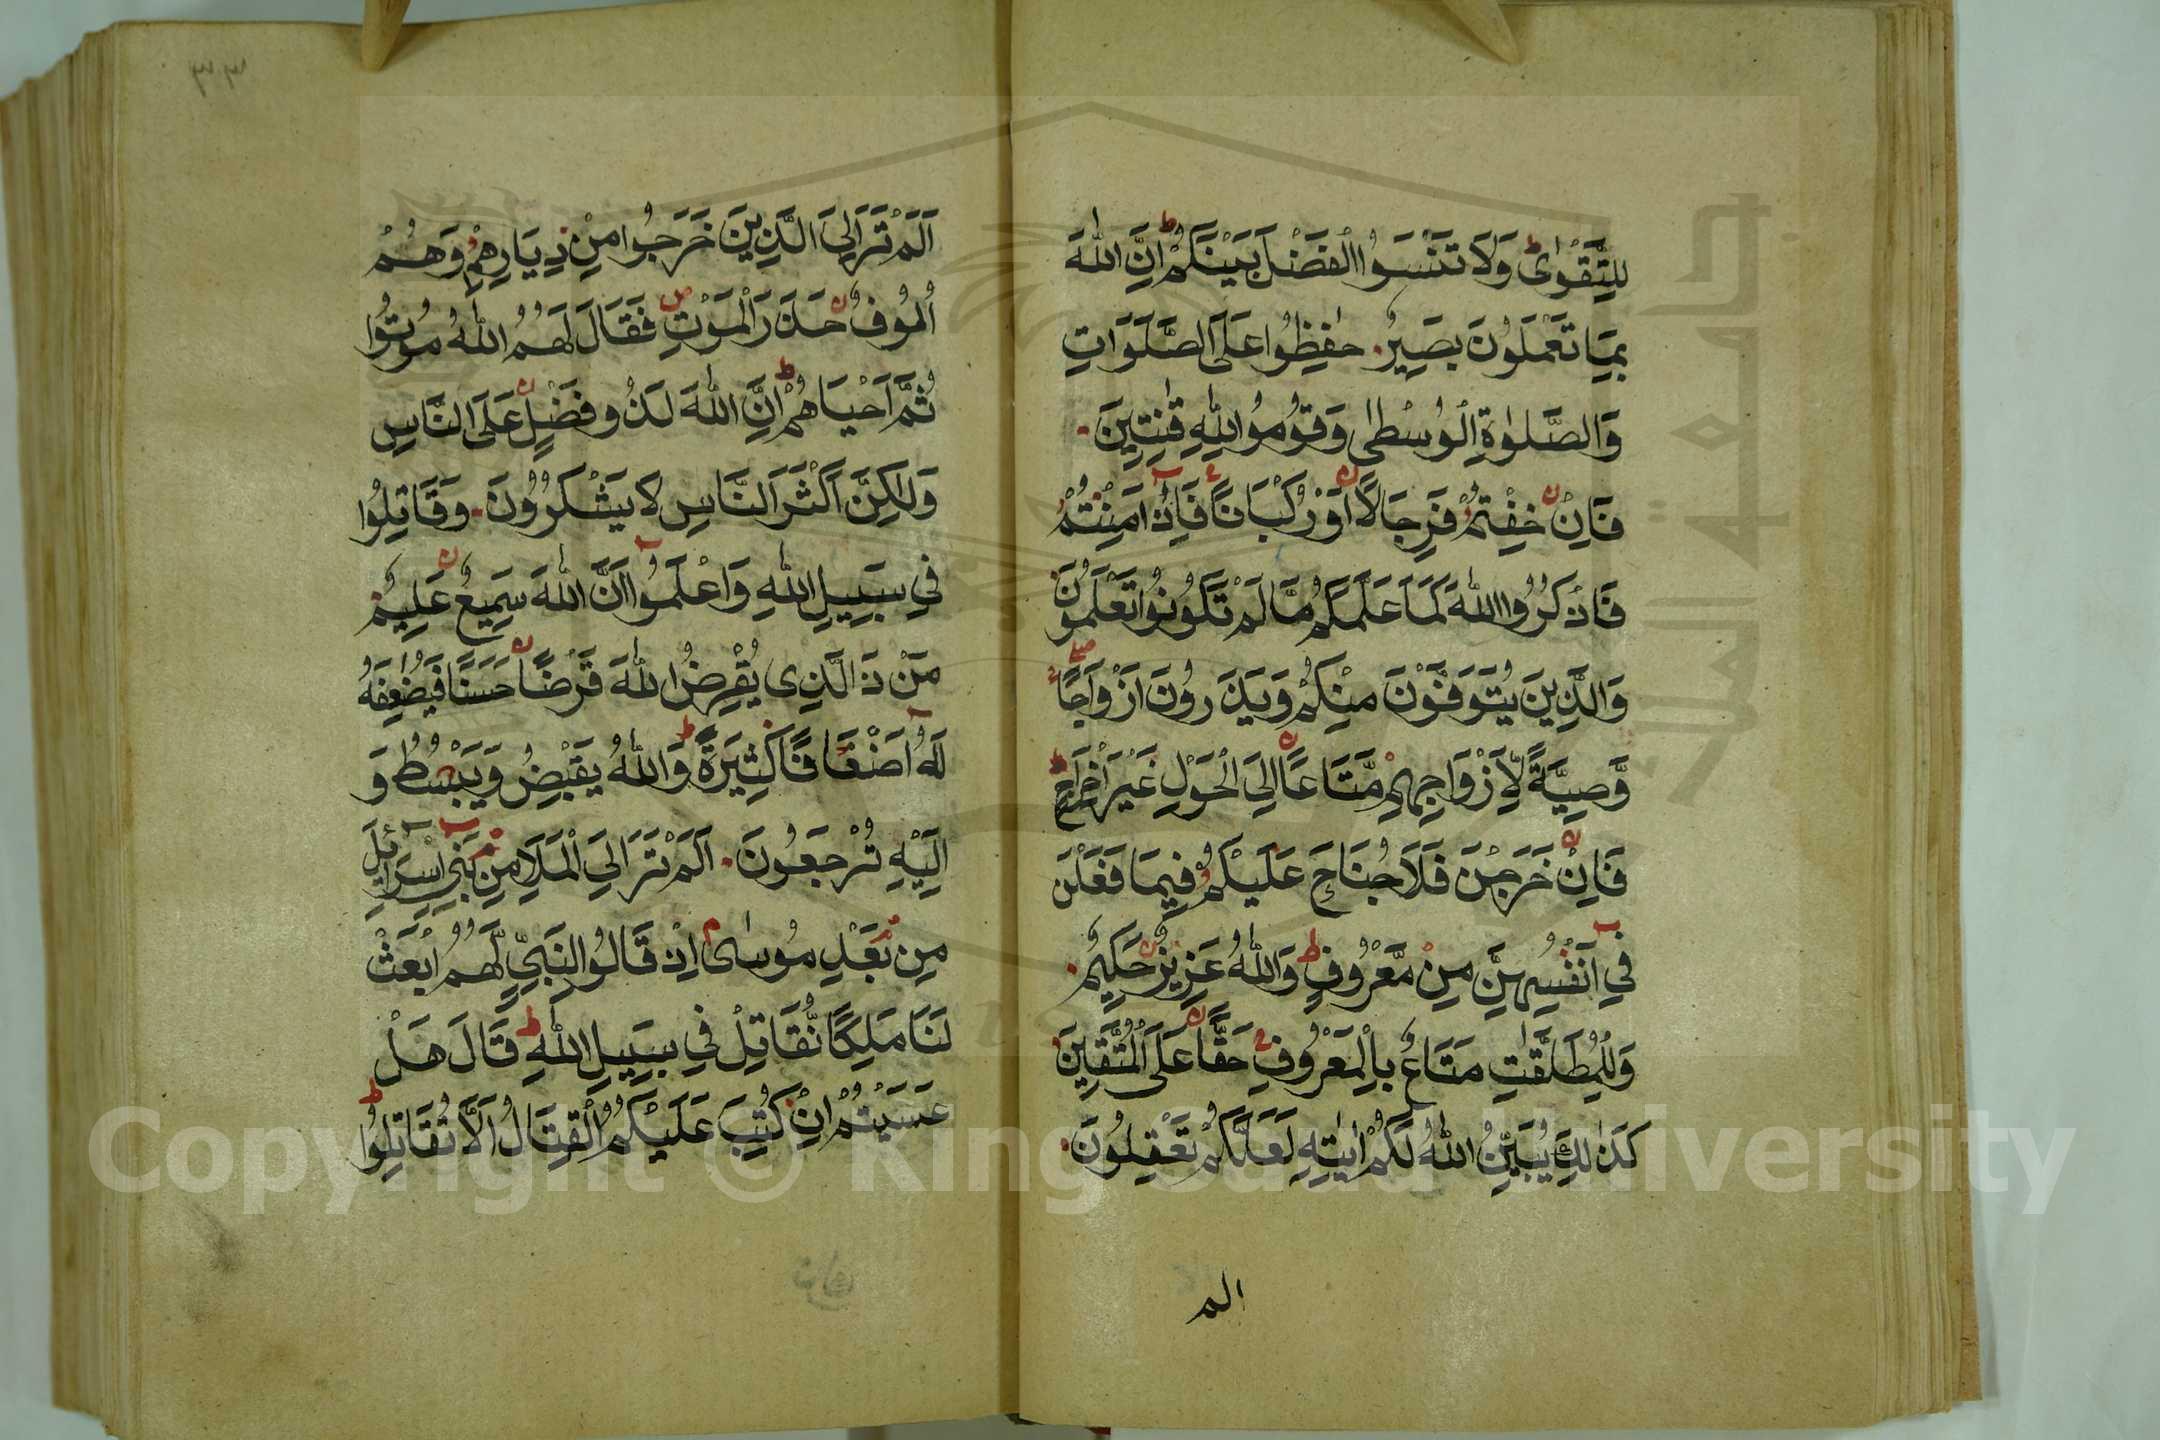 لِلتَّقْوٰىؕ وَلَا تَنْسَوُا الْفَضْلَ بَيْنَكُمْؕ اِنَّ اللّٰهَ
بِمَا تَعْمَلُونَ بَصِيْرٌ حٰفِظُوا عَلَى الصَّلَوَاتِ
وَالصَّلٰوةِ الْوُسْطٰى وَقُوْمُوْا لِلّٰهِ قٰنِتِيْنَ
فَاِنْ خِفْتُمْ فَرِجَالًا اَوْ رُكْبَانًا فَاِذَا اَمِنْتُمْ
فَاذْكُرُوا اللّٰهَ كَمَا عَلَّمَكُمْ مَّا لَمْ تَكُوْنُوْا تَعْلَمُوْنَ
وَالَّذِيْنَ يُتَوَفَّوْنَ مِنْكُمْ وَيَذَرُوْنَ اَزْوَاجًا
وَّصِيَّةً لِّاَزْوَاجِهِمْ مَّتَاعًا اِلَى الْحَوْلِ غَيْرَ اِخْرَاجٍ
فَاِنْ خَرَجْنَ فَلَا جُنَاحَ عَلَيْكُمْ فِيْمَا فَعَلْنَ
فِيْ اَنْفُسِهِنَّ مِنْ مَّعْرُوْفٍؕ وَاللّٰهُ عَزِيْزٌ حَكِيْمٌ
وَلِلْمُطَلَّقٰتِ مَتَاعٌ بِالْمَعْرُوْفِ حَقًّا عَلَى الْمُتَّقِيْنَ
كَذٰلِكَ يُبَيِّنُ اللّٰهُ لَكُمْ اٰيٰتِهٖ لَعَلَّكُمْ تَعْقِلُوْنَ
الم
اَلَمْ تَرَ اِلَى الَّذِيْنَ خَرَجُوْا مِنْ دِيَارِهِمْ وَهُمْ
اُلُوْفٌ حَذَرَ الْمَوْتِ فَقَالَ لَهُمُ اللّٰهُ مُوْتُوْا
ثُمَّ اَحْيَاهُمْؕ اِنَّ اللّٰهَ لَذُوْ فَضْلٍ عَلَى النَّاسِ
وَلٰكِنَّ اَكْثَرَ النَّاسِ لَا يَشْكُرُوْنَ وَقَاتِلُوْا
فِيْ سَبِيْلِ اللّٰهِ وَاعْلَمُوْا اَنَّ اللّٰهَ سَمِيْعٌ عَلِيْمٌ
مَنْ ذَا الَّذِيْ يُقْرِضُ اللّٰهَ قَرْضًا حَسَنًا فَيُضٰعِفَهٗ
لَهٗ اَضْعَافًا كَثِيْرَةًؕ وَاللّٰهُ يَقْبِضُ وَيَبْسُطُ وَ
اِلَيْهِ تُرْجَعُوْنَ اَلَمْ تَرَ اِلَى الْمَلَاِ مِنْ بَنِيْ اِسْرَائِيْلَ
مِنْ بَعْدِ مُوْسٰى اِذْ قَالُوْا لِنَبِيٍّ لَّهُمُ ابْعَثْ
لَنَا مَلِكًا نُّقَاتِلْ فِيْ سَبِيْلِ اللّٰهِؕ قَالَ هَلْ
عَسَيْتُمْ اِنْ كُتِبَ عَلَيْكُمُ الْقِتَالُ اَلَّا تُقَاتِلُوْاؕ
Copyright © King Saud University